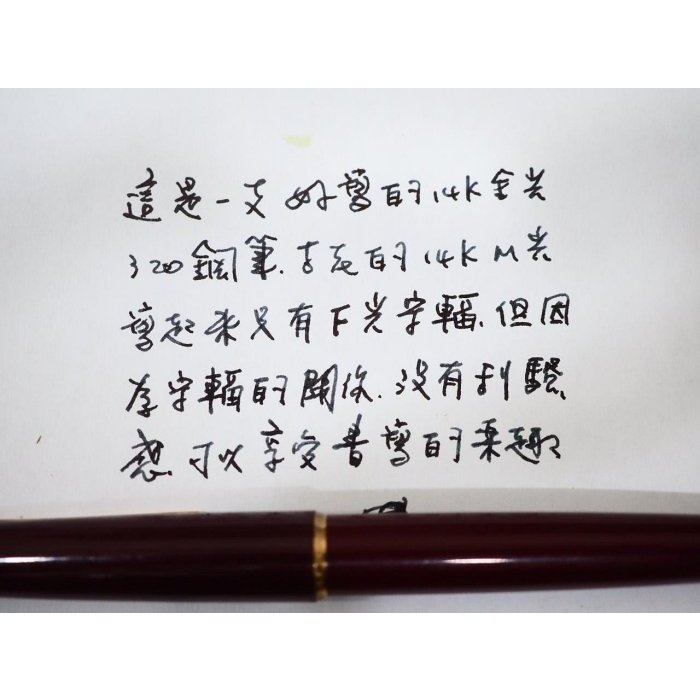 這是一支好寫的14K金尖
320鋼筆.古老的14K M尖
寫起來只有F尖字幅.但因
為字幅的關係.沒有刮紙
感.可以享受書寫的樂趣